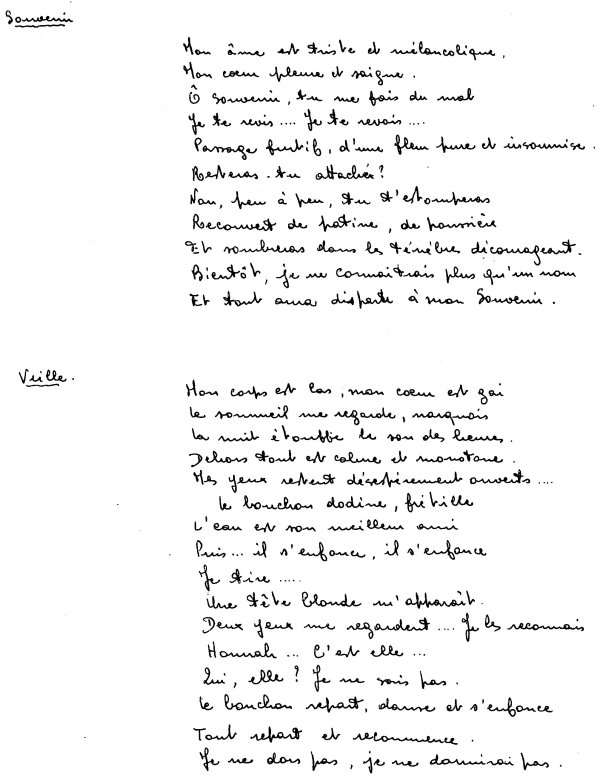 Souvenir
Mon âme est triste et mélancolique.
Mon cœur pleure et saigne.
Ô souvenir, tu me fais du mal
Je te revis .... Je te revois ....
Passage furtif, d'une fleur pure et insoumise.
Resteras-tu attachée?
Non, peu à peu, tu t'estomperas
Recouvert de patine, de poussière
Et sombreras dans les ténèbres décourageant.
Bientôt, je ne connaitrais plus qu'un nom
Et tout aura disparte à mon Souvenir.
Veille.
Mon corps est las, mon cœur est gai
Le sommeil me regarde, narquois
La nuit étouffe le son des heures.
Dehors tout est calme et monotone.
Mes yeux restent désespérement ouverts ....
Le bouchon dodine, frétille
L'eau est son meilleur ami
Puis ... il s'enfonce, il s'enfonce
Je tire .....
Une tête blonde m'apparaît.
Deux yeux me regardent .... Je les reconnais
Hannah ... C'est elle ...
Qui, elle? Je ne sais pas.
Le bouchon repart, danse et s'enfonce
Tout repart et recommence.
Je ne dors pas, je ne dormirai pas.